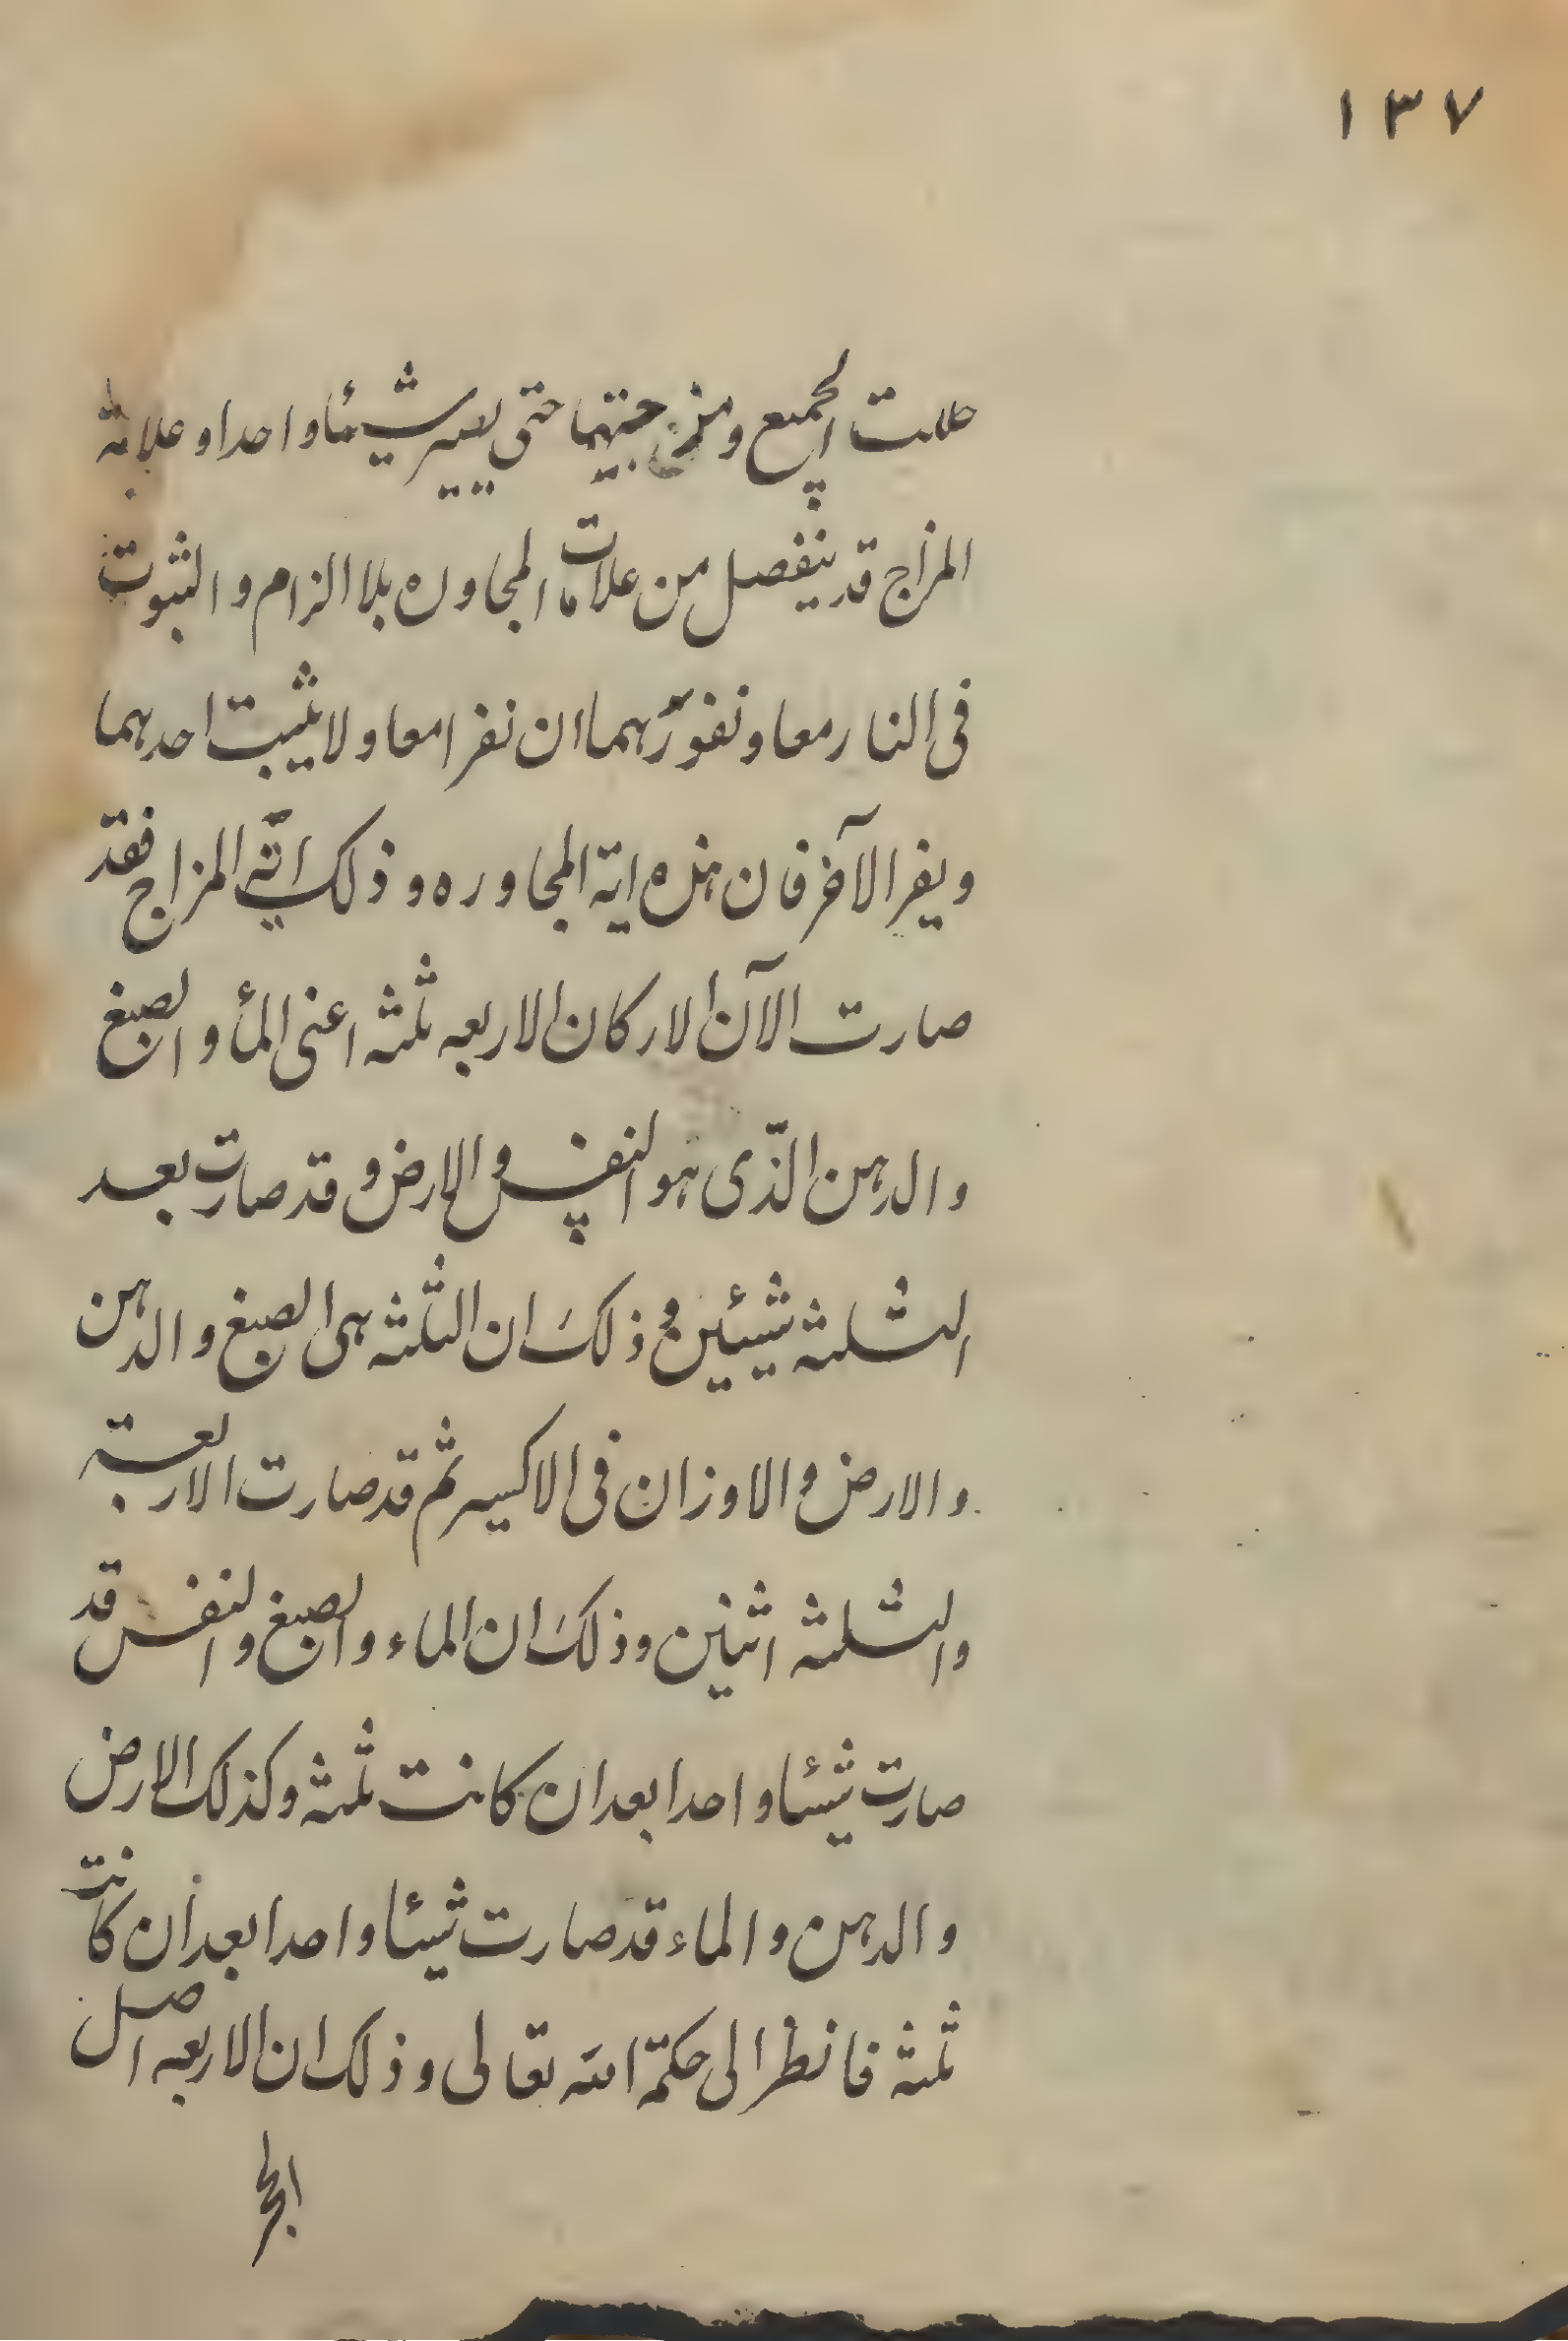 ١٣٧
حللت الجميع ومزجتهما حتى يصير شيئا واحدا وعلامة
المزاج قد ينفصل من علامات المجاوره بلا الزام والثبوت
فى النار معا ونفورهما ان نفرا معا ولا يثبت احدهما
ويفر الآخر فان هذه اية المجاوره وذلك انّه المزاج فقد
صارت الآن الاركان الاربعه ثلثه اعنى المأ والصبغ
والدهن الّذى هو النفس والارض وقد صارت بعد
الثلثه شيئين وذلك ان الثلثه هى الصبغ والدهن
والارض والاوزان فى الاكسير ثم قد صارت الاربعة
والثلثه اثنين وذلك ان الماء والصبغ والنفس قد
صارت شيئا واحدا بعد ان كانت ثلثه وكذلك الارض
والدهن والماء قد صارت شيئا واحدا بعد ان كانت
ثلثه فانظر الى حكمة الله تعالى وذلك ان الاربعه اصل
الحجر